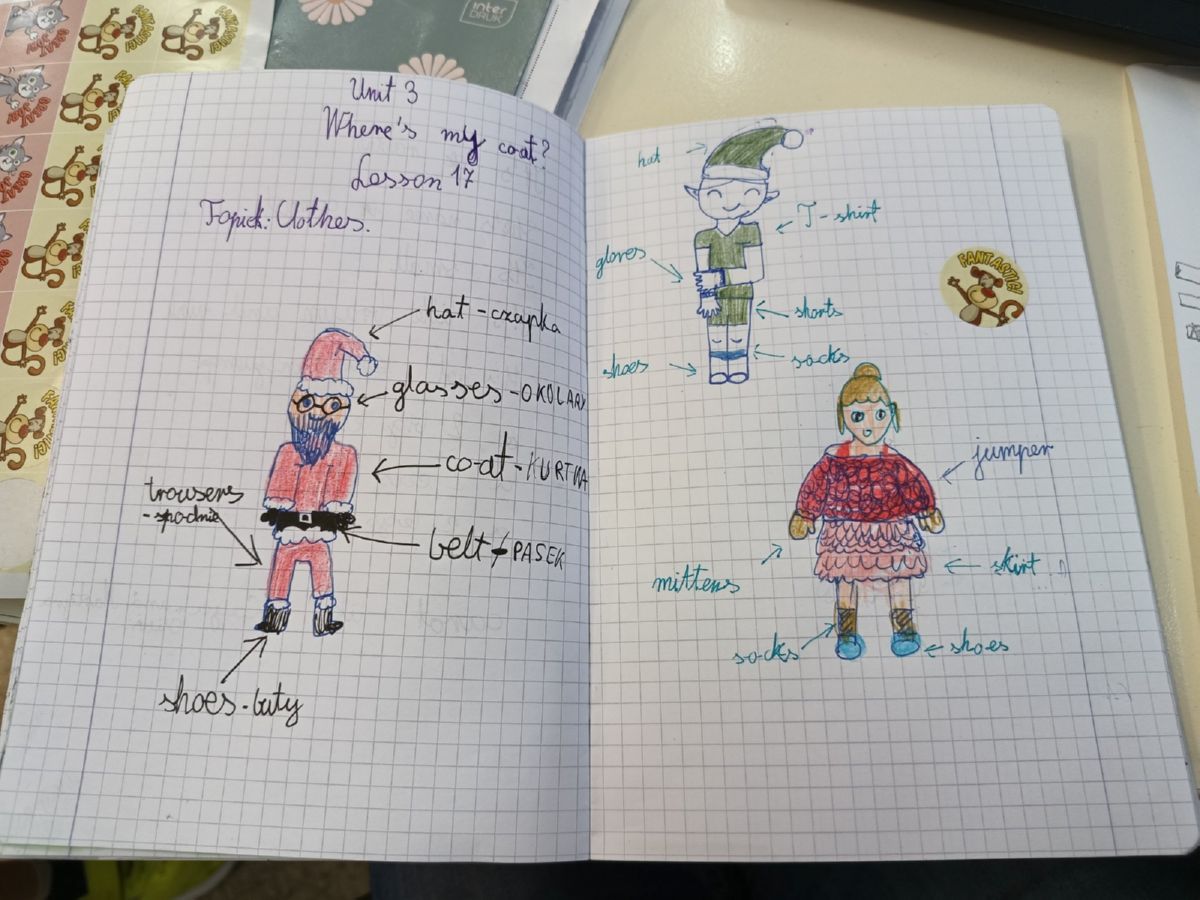 inter
DRUK
Unit 3
Where's my coat?
Lesson 17
Topick: Clothes.
hat - czapka
glasses - OKOLARY
coat - KURTKA
trowsers
- spodnie
belt - PASEK
shoes - buty
hat
T-shirt
gloves
shorts
shoes
socks
FANTASTIC!
jumper
mittens
skirt
socks
shoes